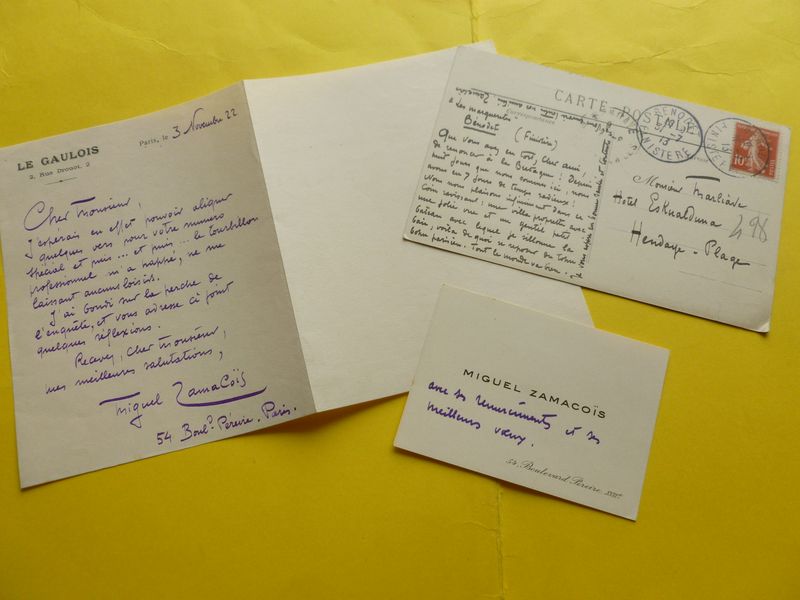 LE GAULOIS
2, Rue Drouot, 2
Paris, le 3 Novembre 22
Cher Monsieur,
J'espérais en effet pouvoir aligner
quelques vers pour votre numéro
spécial et puis ... et puis ... le tourbillon
professionnel m'a happé, ne me
laissant aucun loisir.
J'ai bondi sur la perche de
l'enquête, et vous adresse ci joint
quelques réflexions.
Recevez, cher Monsieur,
mes meilleures salutations,
Miguel Zamacoïs
54 Boulд Péreire. Paris.
CARTE POSTALE
Correspondance
Les marguerites
Bénodet (Finistère)
Que vous avez eu tort, cher ami,
de renoncer à la Bretagne! Depuis
huit jours que nous sommes ici, nous
avons eu 7 jours de temps radieux!
Nous nous plaisons infiniment dans ce
coin ravissant: une villa proprette avec
une jolie vue et un gentil petit
bateau avec lequel je sillonne la
baie; voilà de quoi se reposer du
parisien. Tout le monde va bien.
FINISTERE
10
Monsieur Marliave
Hotel Eskualduna
Hendaye-Plage
498
MIGUEL ZAMACOÏS
avec ses remerciements et ses
meilleurs vœux.
54, Boulevard Péreire, XVIIe